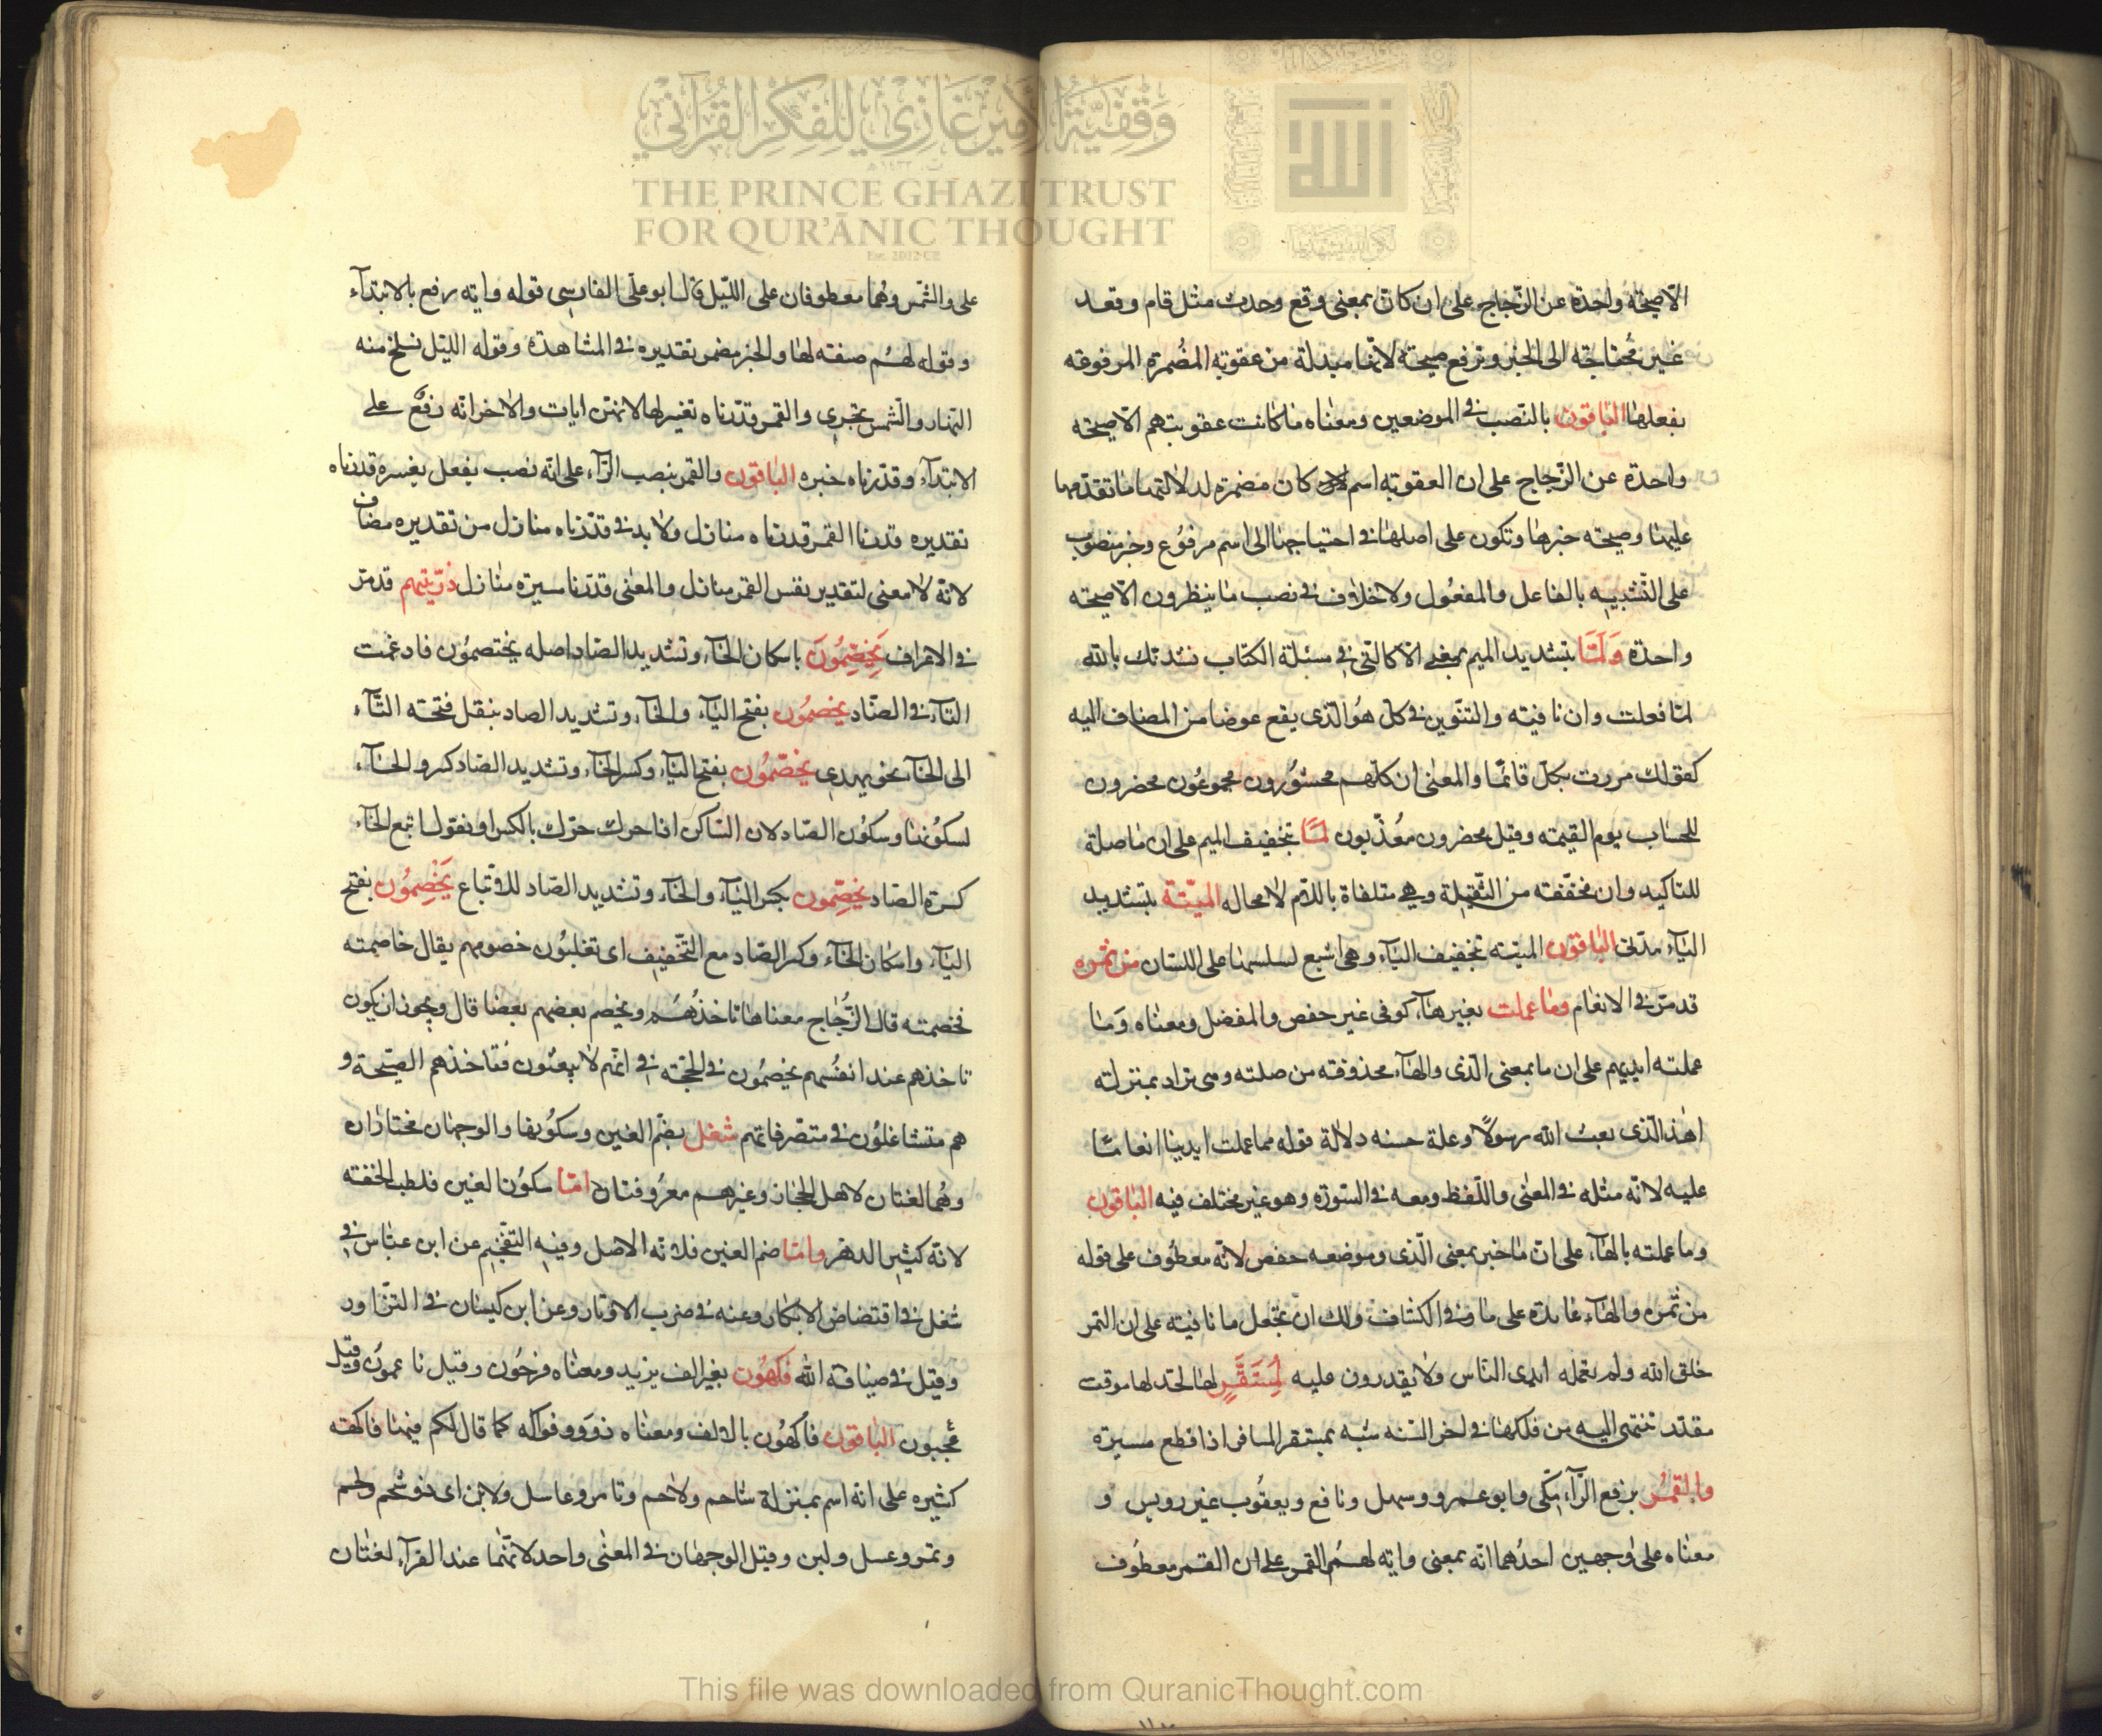 الاصيحة واحدة عن الزجاج على ان كان بمعنى وقع وحدث مثل قام وقعد
غير محتاجة الى الخبر وترفع صيحة لانها مبدلة من عقوبة المضمرة المرفوعة
بفعلها الباقون بالنصب فى الموضعين ومعناه ما كانت عقوبتهم الاصيحة
واحدة عن الزجاج على ان العقوبة اسم كان مضمرة لدلالتها ما تقدمها
عليها وصيحة خبرها وتكون على اصلها فى احتياجها الى اسم مرفوع وخبر منصوب
على التشبيه بالفاعل والمفعول ولا خلاف فى نصب ما ينظرون الاصيحة
واحدة وَلَمَّا بتشديد الميم بمعنى الا كالتى فى مسئلة الكتاب نشدتك بالله
لما فعلت وان نافية والتنوين فى كل هو الذى يقع عوضا من المضاف اليه
كقولك مررت بكل قائما والمعنى ان كلهم محشورون مجموعون محضرون
للحساب يوم القيمة وقيل محضرون معذبون لما بتخفيف الميم على ان ما صلة
للتاكيد وان مخففة من الثقيلة وهى متلقاة باللام لا محاله الميتة بتشديد
الياء مدنى الباقون الميتة بتخفيف الياء وهى اشيع لسلسها على اللسان من ثمره
قد مر فى الانعام وما عملت بغير هاء كوفى غير حفص والمفضل ومعناه وَما
عملته ايديهم على ان ما بمعنى الذى والهاء محذوفة من صلته وهى تراد بمنزلة
اهذا الذى بعث الله رسولا وعلة حسنه دلالة قوله مما عملت ايدينا انعاما
عليه لانه مثله فى المعنى واللفظ ومعه فى السورة وهو غير مختلف فيه الباقون
وما عملته بالهاء على ان ما خبر بمعنى الذى وموضعه حفص لانه معطوف على قوله
من ثمره والهاء عائدة على ما وفى الكشاف ولك ان تجعل ما نافية على ان الثمر
خلق الله ولم تعمله ايدى الناس ولا يقدرون عليه لمستقر لها لحد لها موقت
مقدر تنتهى اليه من فلكها فى اخر السنه شبه بمستقر المسافر اذا قطع مسيره
والقمرُ برفع الراء مكى وابو عمرو وسهل ونافع ويعقوب غير رويس و
معناه على وجهين احدهما انه بمعنى واية لهم القمر على ان القمر معطوف
على والشمس وهما معطوفان على الليل قال ابو على الفارسى قوله واية رفع بالابتداء
وقوله لهم صفة لها والخبر مضمر تقديره فى المشاهدة وقوله الليل نسلخ منه
النهار والشمس تجرى والقمر قدرناه تفسير لها لانهن ايات والاخر انه رفع على
الابتداء وقدرناه خبره الباقون والقمر بنصب الراء على انه نصب بفعل يفسره قدرناه
تقديره قدرنا القمر قدرناه منازل ولا بد فى قدرناه منازل من تقدير مضاف
لانه لا معنى لتقدير نفس القمر منازل والمعنى قدرنا مسيره منازل ذريتهم قد مر
فى الاعراف يَخْصِّمُونَ باسكان الخاء وتشديد الصاد اصله يختصمون فادغمت
التاء فى الصاد يخصمون بفتح الياء والخاء وتشديد الصاد بنقل فتحة التاء
الى الخاء نحو يهدى يخصمون بفتح الياء وكسر الخاء وتشديد الصاد كسروا الخاء
لسكونها وسكون الصاد لان الساكن اذا حرك حرك بالكسر او نقول اتبع الخاء
كسرة الصاد يخصمون بكسر الياء والخاء وتشديد الصاد للاتباع يَخْصِمُون بفتح
الياء واسكان الخاء وكسر الصاد مع التخفيف اى تغلبون خصومهم يقال خاصمته
فخصمته قال الزجاج معناها تاخذهم ويخصم بعضهم بعضا قال ويجوز ان يكون
تاخذهم عند انفسهم يخصمون فى الحجة فى انهم لا يبعثون فتاخذهم الصيحة و
هم متشاغلون فى متصرفاتهم شغل بضم الغين وسكونها والوجهان مختاران
وهما لغتان لاهل الحجاز وغيرهم معروفتان اما سكون الغين فلطلب الخفة
لانه كثير الدهر واما ضم الغين فلانه الاصل وفيه التفخيم عن ابن عباس فى
شغل فى اقتضاض الابكار وعنه فى ضرب الاوتار وعن ابن كيسان فى التزاور
وقيل فى ضيافة الله فكهون بغير الف يزيد ومعناه فرحون وقيل ناعمون وقيل
معجبون الباقون فاكهون بالالف ومعناه ذوو فواكه كما قال لكم فيها فاكهة
كثيرة على انه اسم بمنزلة شاحم ولاحم وتامر وعاسل ولابن اى ذو شحم ولحم
وتمر وعسل ولبن وقيل الوجهان فى المعنى واحد لانهما عند الفراء لغتان
وقفية الأمير غازي للفكر القرآني
THE PRINCE GHAZI TRUST
FOR QUR'ĀNIC THOUGHT
Est. 2012 CE
الله
This file was downloaded from QuranicThought.com